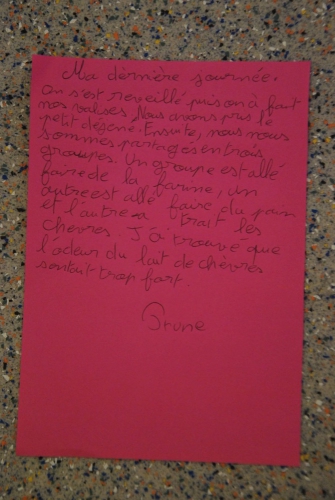 Ma dernière journée.
On s'est reveillé puis on à fait
nos valises. Nous avons pris le
petit déjené. Ensuite, nous nous
sommes partagés en trois
groupes. Un groupe est allé
faire de la farine, un
autre est allé faire du pain
et l'autre a trait les
chevres. J'ai trouvé que
l'odeur du lait de chèvres
sentait trop fort.
Prune